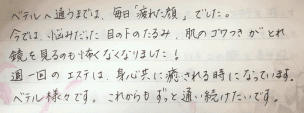 ベテルへ通うまでは、毎日「疲れた顔」でした。
今では、悩みだった目の下のたるみ、肌のゴワつきがとれ
鏡を見るのも怖くなくなりました！
週一回のエステは、身心共に癒される時になっています。
ベテル様々です。これからもずっと通い続けたいです。